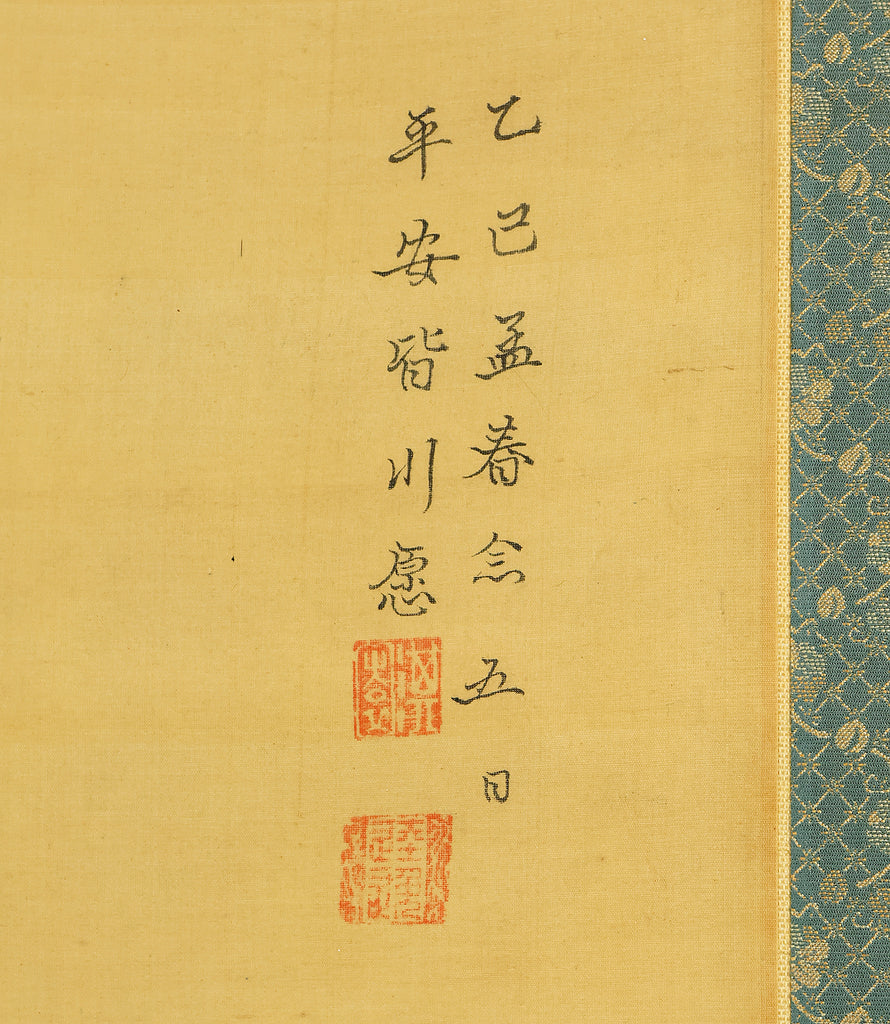 乙巳孟春念五日
平安皆川愿